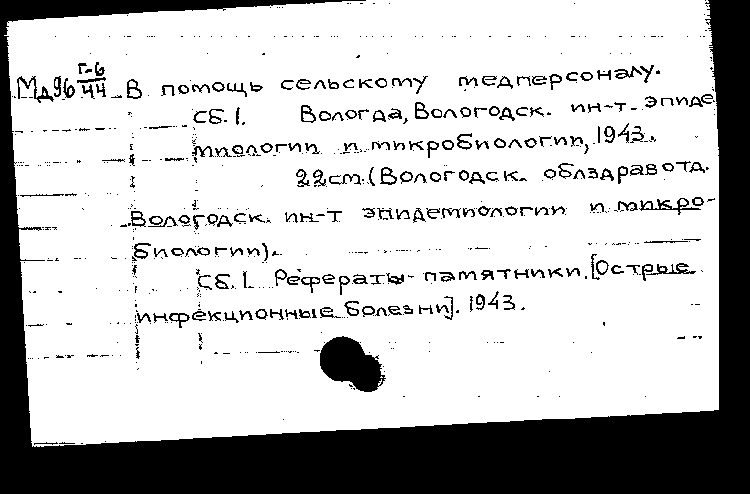 Г-6
Мд96 44 В помощь сельскому медперсоналу.
Сб.1. Вологда, Вологодск. ин-т. эпиде
миологии и микробиологии, 1943.
22см. (Вологодск. облздравотд.
Вологодск. ин-т эпидемиологии и микро-
биологии).
Сб.1. Рефераты-памятники. [Острые
инфекционные болезни]. 1943.